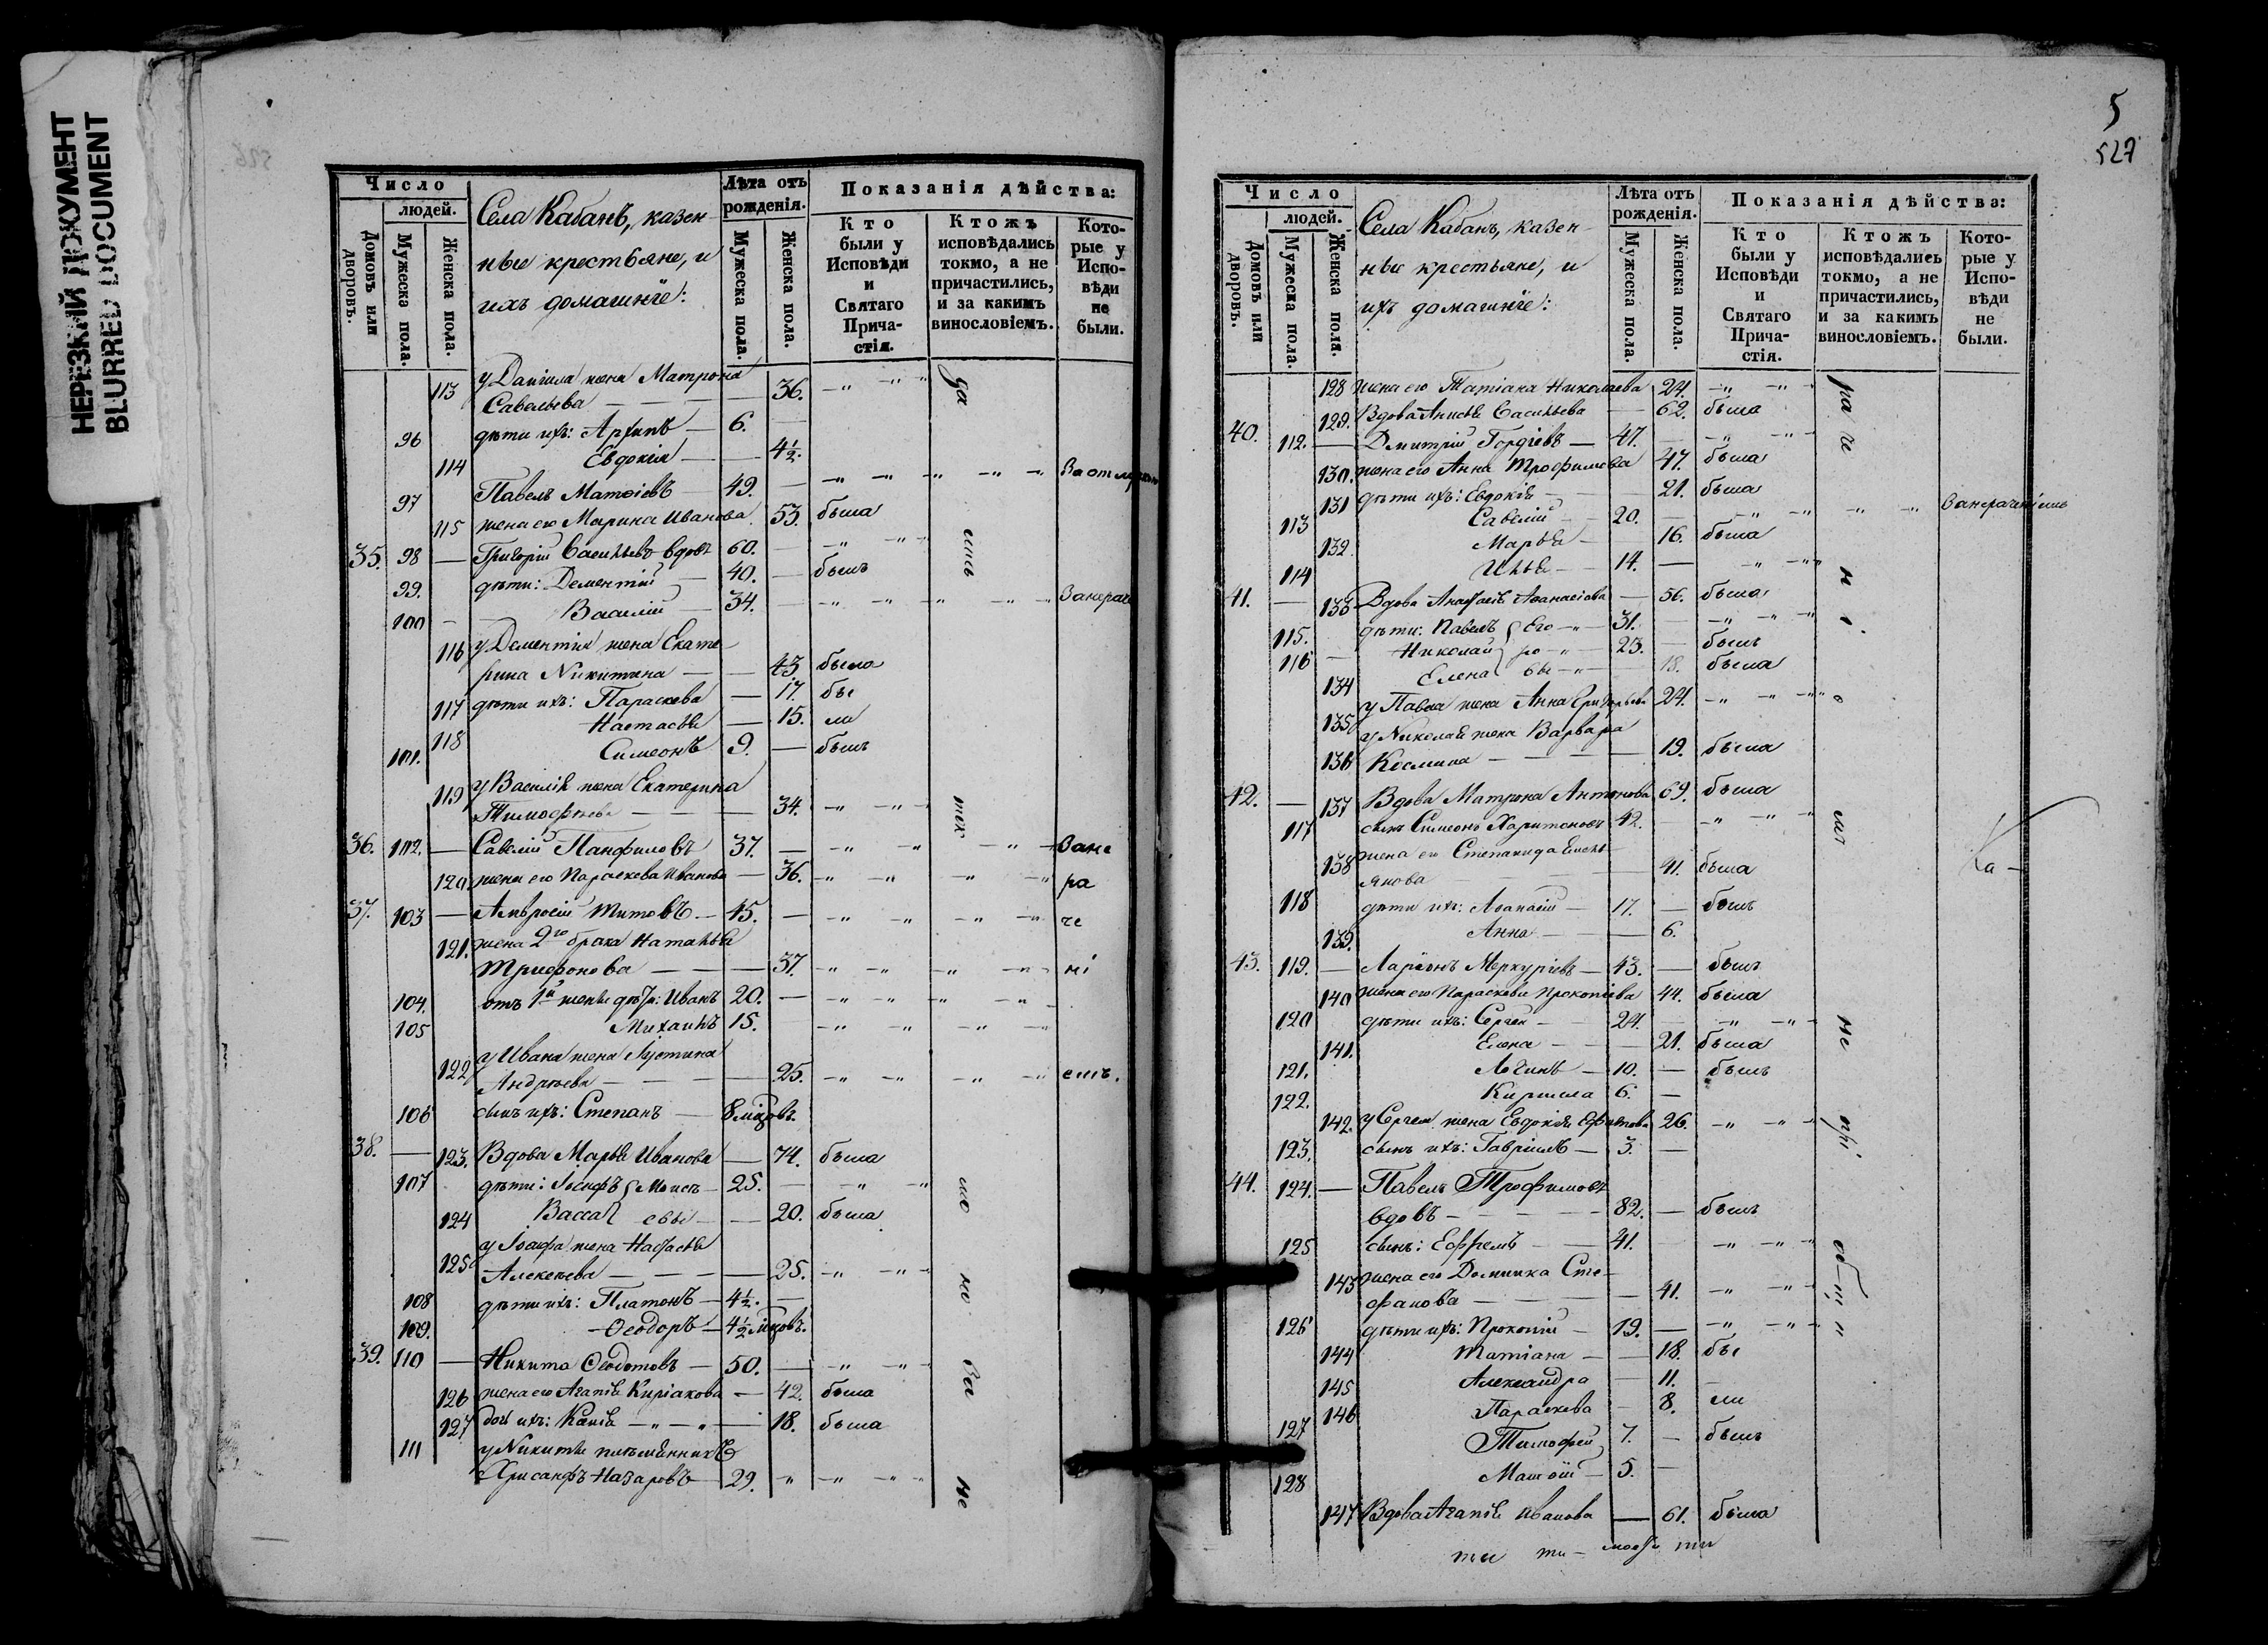 НЕРЕЗКИЙ ДОКУМЕНТ
BLURRED DOCUMENT
Число
людей.
Домовъ или дворовъ.
Мужеска пола.
Женска пола.
Села Кабанъ, казен
ные крестьяне, и
ихъ домашніе:
Лѣта отъ рожденія.
Мужеска пола.
Женска пола.
Показанія дѣйства:
Кто были у Исповѣди и Святаго Причастія.
Ктожъ исповѣдались токмо, а не причастились, и за какимъ винословіемъ.
Которые у Исповѣди не были.
113 у Даніила жена Матрона
Савельева — 36. —〃 —〃
96 дѣти ихъ: Архипъ — 6.
114 Евдокія — 4½.
97 Павелъ Матѳіевъ — 49. — За отлучкою
115 жена его Марина Иванова 53. была
35. 98 — Григорій Васильевъ вдовъ 60. —〃 —〃
99. дѣти: Дементій — 40. — былъ
100 Василій — 34. — Занерач
116 у Дементія жена Екате
рина Никитина — 43. была
117 дѣти ихъ: Параскева — 17. бы
118 Настасья — 15. ли
101. Симеонъ 9. — былъ
119 у Василія жена Екатерина
Тимофѣева — 34. —〃 —〃
36. 102. — Савелій Панфиловъ 37. — Зане
120 жена его Параскева Иванова — 36. ра
37. 103 — Амвросій Титовъ — 45. — че
121. жена 2го брака Наталья
Трифонова — 37. ні
104. отъ 1й жены дѣти: Иванъ 20. —
105 Михаилъ 15.
122 у Ивана жена Іустина
Андреева — 25. емъ.
106 сынъ ихъ: Степанъ — 8 мѣсцовъ.
38. — 123. Вдова Марья Иванова — 74. была
107 дѣти: Іосифъ Моисе — 25. —
124 Васса евы — 20. была
125 у Іосифа жена Настасья
Алексеева — 25. —〃 —〃
108 дѣти ихъ: Платонъ — 4½. —
109. Ѳеодоръ — 4½ мѣсцовъ.
39. 110 — Никита Ѳеодотовъ — 50. —
126 жена его Агапія Киріакова — 42. была
127 дочь ихъ: Ксенія — 18. была
111 у Никиты племянникъ
Хрисанфъ Назаровъ — 29. 〃
5
527
Число
людей.
Домовъ или дворовъ.
Мужеска пола.
Женска пола.
Села Кабанъ, казен
ные крестьяне, и
ихъ домашніе:
Лѣта отъ рожденія.
Мужеска пола.
Женска пола.
Показанія дѣйства:
Кто были у Исповѣди и Святаго Причастія.
Ктожъ исповѣдались токмо, а не причастились, и за какимъ винословіемъ.
Которые у Исповѣди не были.
128 жена его Татіана Николаева 24. —〃 —〃
129. Вдова Анисья Васильева — 62. была
40. 112. — Дмитрій Гордіевъ — 47. —〃 —〃
130. жена его Анна Трофимова 47. была
131 дѣти ихъ: Евдокія — 21. была
113 Савелій — 20. — Занераченіемъ
132 Марья — 16. была
114 Илья — 14. —
41. — 133 Вдова Анастасія Аѳанасіева — 56. была
115. дѣти: Павелъ Его — 31. —
116 — Николай ро — 23. — былъ
134 Елена вы — 18. была
135 у Павла жена Анна Григорьева 24.
136 у Николая жена Варвара
Космина — 19. была
42. — 137 Вдова Матрона Антонова 69. была
117 сынъ Симеонъ Харитоновъ 42. —
138 жена его Степанида Емель
янова — 41. была
118 дѣти ихъ: Аѳанасій — 17. — былъ
139. Анна — 6.
43. 119. — Ларіонъ Меркуріевъ — 43. — былъ
140 жена его Параскева Прокопіева 44. была
120 дѣти ихъ: Сергей — 24. —
141. Елена — 21. была
121. Логинъ — 10. — былъ
122. Кирилла 6. —
142. у Сергея жена Евдокія 26.
123. сынъ ихъ: Гавріилъ — 3. —
44. 124. — Павелъ Трофимовъ
вдовъ — 82. — былъ
125 сынъ: Ефремъ — 41.
143 жена его Домника Сте
фанова — 41.
126 дѣти ихъ: Прокопій — 19. —
144 Татіана — 18. бы
145 Александра — 11.
146 Параскева — 8. ли
127 Тимофей 7. — былъ
128 Матѳій — 5. —
147 Вдова Агапія Иванова — 61. была